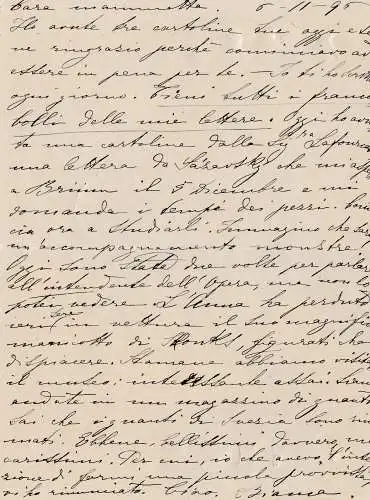 Cara mammetta. 6-11-95
Ho avute tre cartoline sue oggi e
ne ringrazio perchè cominciavo ad
essere in pena per te. - Io ti ho
ogni giorno. Tieni tutti i franco
bolli delle mie lettere. Oggi ho avu
ta una cartolina dalla Sig.ra Lafour
una lettera da che m'asp
a Brünn il 5 Dicembre e mi
domanda i tempi dei pezzi.
cia ora a studiarli. Immagino che
un accompagnamento monstre!
Oggi sono state due volte per parlare
all'intendente dell'Opera, ma non lo
potei vedere. L'Anna ha perduto
ieri sera in vettura il suo magnifico
maniotto di Skonks, figurati che
dispiacere. Stamane abbiamo visita
il museo: interessante assai. Siam
andate in un magazzino di guanti
sai che i guanti di Svezia sono rino
mati. Ebbene, bellissimi davvero, ma
carissimi. Per cui, io che avevo l'inten
zione di farmi una piccola provvista
vi ho rinunciato.